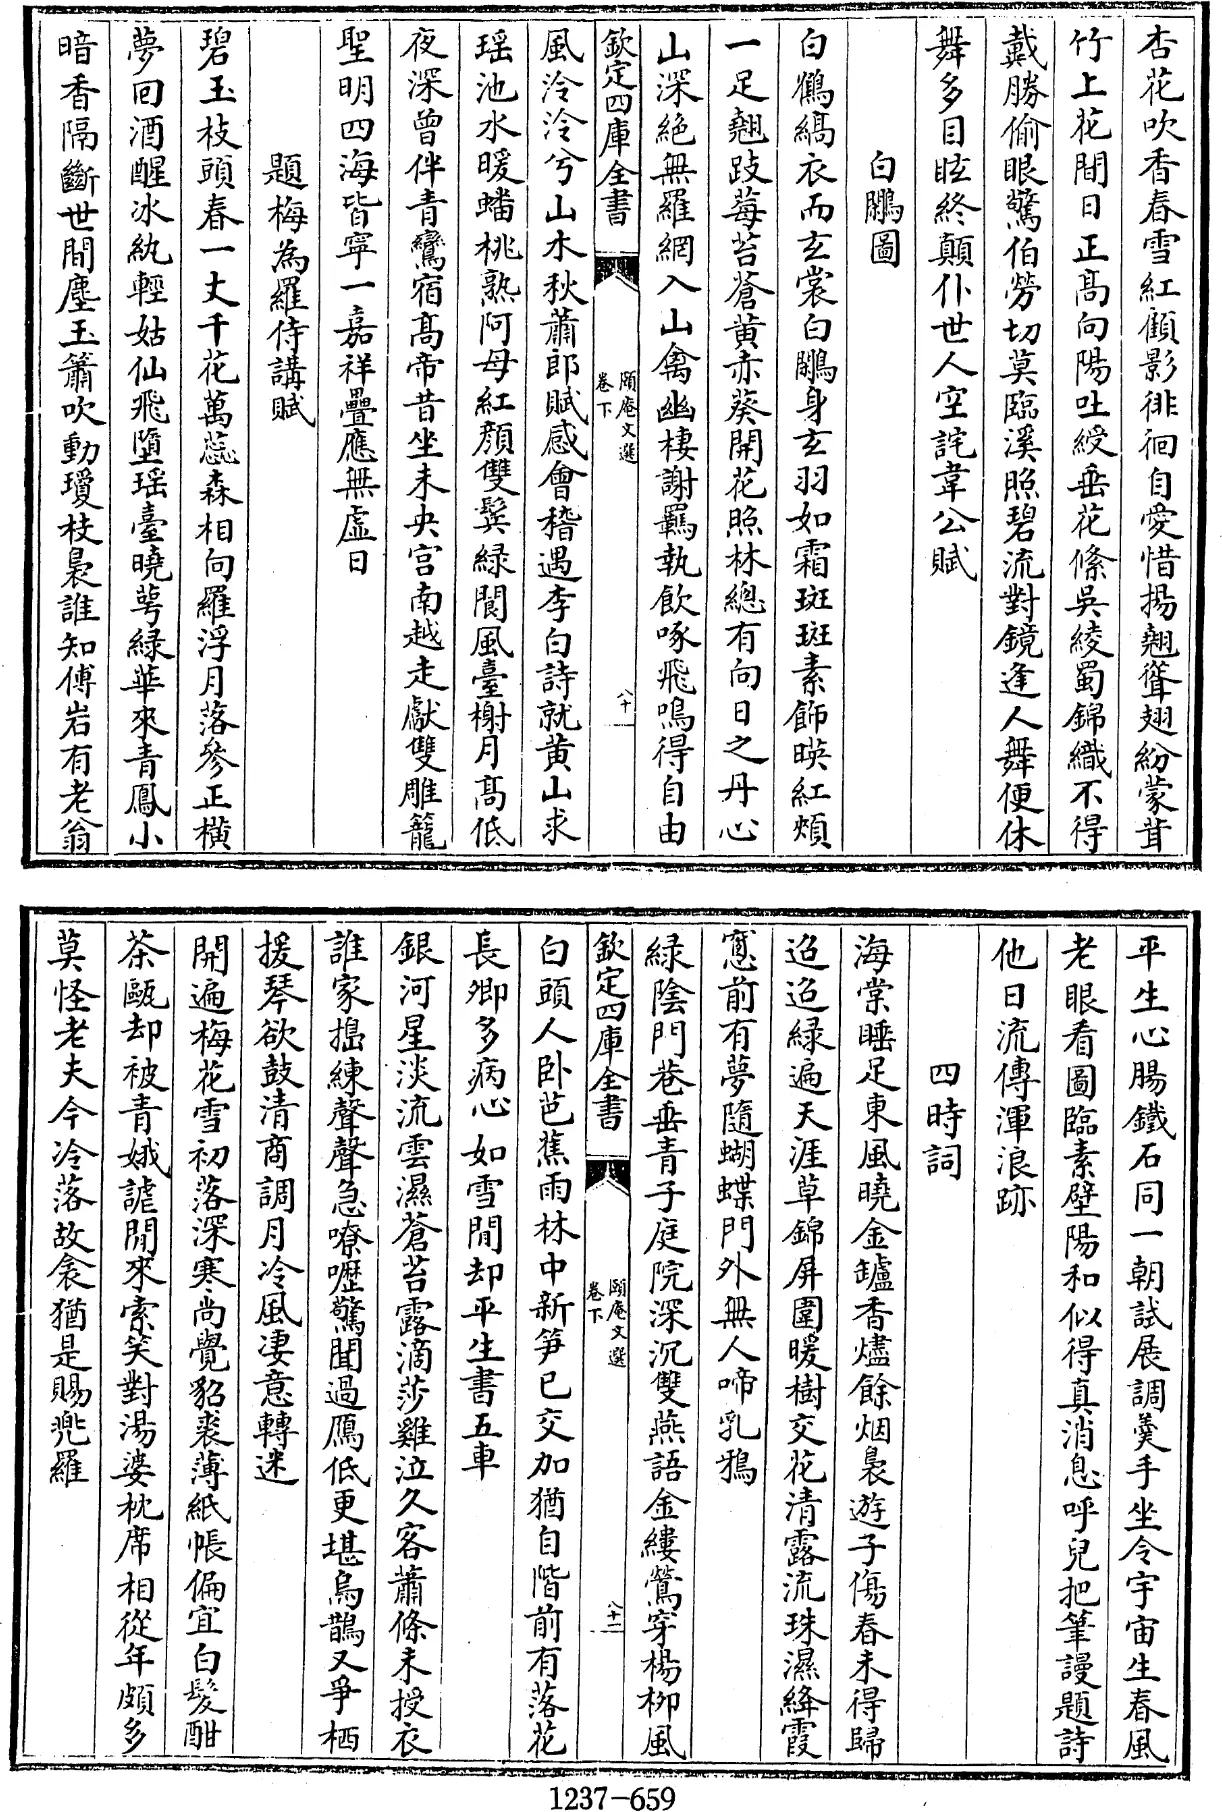 杏花吹香春雪紅顧影徘徊自愛惜揚翹聳翅紛蒙茸
竹上花間日正高向陽吐綬垂花絛吳綾蜀錦織不得
戴勝偷眼驚伯勞切莫臨溪照碧流對鏡逢人舞便休
舞多目眩終顛仆世人空詫韋公賦
白鷳圖
白鶴縞衣而玄裳白鷳身玄羽如霜斑斑素飾暎紅頰
一足翹跂莓苔蒼黃赤葵開花照林總有向日之丹心
山深絶無羅網入山禽幽棲謝羈執飲啄飛鳴得自由
欽定四庫全書
頤庵文選
卷下
八十
風泠泠兮山木秋蕭郎賦感會稽遇李白詩就黃山求
瑶池水暖蟠桃熟阿母紅顏雙鬂緑閬風臺榭月髙低
夜深曾伴青鸞宿髙帝昔坐未央宫南越走獻雙雕籠
聖明四海皆寧一嘉祥疊應無虛日
題梅為羅侍講賦
碧玉枝頭春一丈千花萬蕊森相向羅浮月落參正橫
夢回酒醒冰紈輕姑仙飛墮瑶臺曉萼緑華來青鳳小
暗香隔斷世間塵玉簫吹動瓊枝裊誰知傅岩有老翁
平生心腸鐵石同一朝試展調羹手坐令宇宙生春風
老眼看圖臨素壁陽和似得真消息呼兒把筆謾題詩
他日流傳渾浪跡
四時詞
海棠睡足東風曉金鑪香燼餘烟裊遊子傷春未得歸
迢迢緑遍天涯草錦屏圍暖樹交花清露流珠濕絳霞
窻前有夢隨蝴蝶門外無人啼乳鴉
緑陰門巷垂青子庭院深沉雙燕語金縷鶯穿楊柳風
欽定四庫全書
頤庵文選
卷下
八十一
白頭人卧芭蕉雨林中新笋已交加猶自階前有落花
長卿多病心如雪閒却平生書五車
銀河星淡流雲濕蒼苔露滴莎雞泣久客蕭條未授衣
誰家搗練聲聲急嘹嚦驚聞過鴈低更堪烏鵲又爭栖
援琴欲鼓清商調月冷風凄意轉迷
開遍梅花雪初落深寒尚覺貂裘薄紙帳偏宜白髮酣
茶甌却被青娥謔閒來索笑對湯婆枕席相從年頗多
莫怪老夫今冷落故衾猶是賜兜羅
1237-659